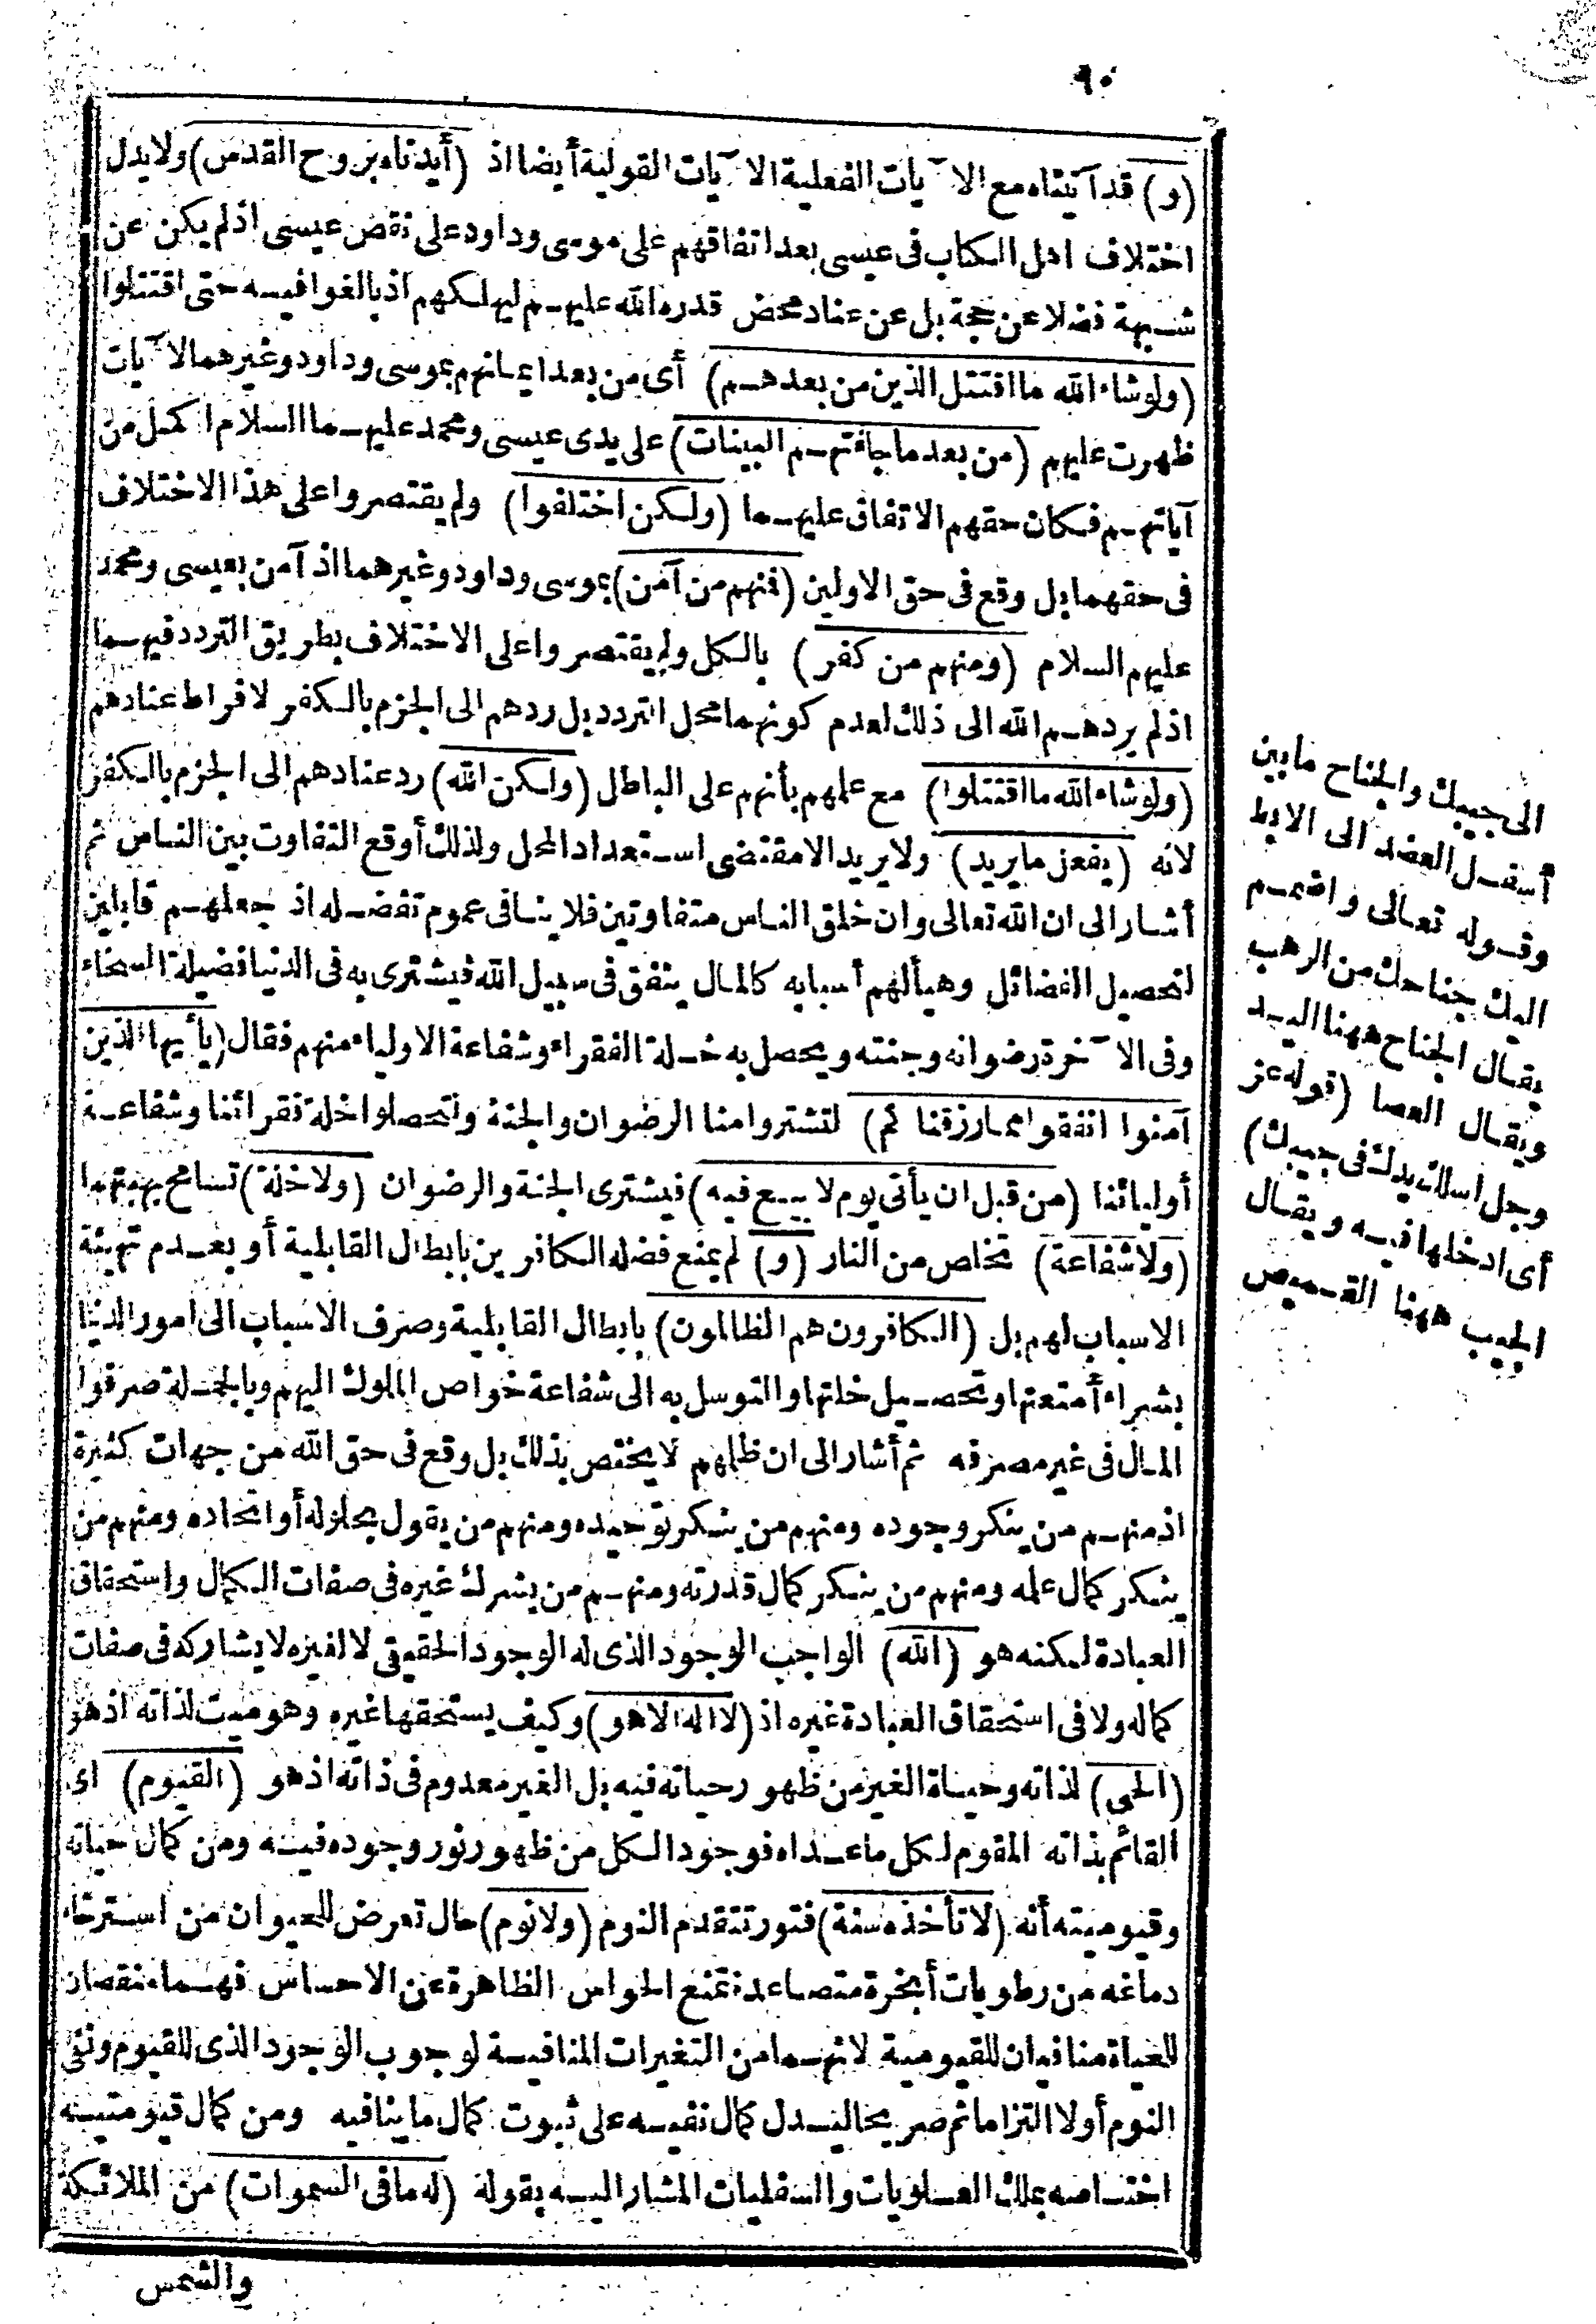 ٩٠
(و) قد آتيناه مع الآيات الفعلية الآيات القولية أيضا اذ (أيدناه بروح القدس) ولا يدل
اختلاف اهل الكتاب فى عيسى بعد اتفاقهم على موسى وداود على نقض عيسى اذ لم يكن عن
شبهة فضلا عن حجة بل عن عناد محض قدره الله عليهم ليهلكهم اذ بالغوا فيه حتى اقتتلوا
(ولو شاء الله ما اقتتل الذين من بعدهم) أى من بعد ايمانهم بموسى وداود وغيرهما الآيات
ظهرت عليهم (من بعد ما جاءتهم البينات) على يدى عيسى ومحمد عليهما السلام اكمل من
آياتهم فكان حقهم الاتفاق عليهما (ولكن اختلفوا) ولم يقتصروا على هذا الاختلاف
فى حقهما بل وقع فى حق الاولين (فمنهم من آمن) بموسى وداود وغيرهما اذ آمن بعيسى ومحمد
عليهم السلام (ومنهم من كفر) بالكل ولم يقتصروا على الاختلاف بطريق التردد فيهما
اذ لم يردهم الله الى ذلك لعدم كونهما محل التردد بل ردهم الى الجزم بالكفر لافراط عنادهم
(ولو شاء الله ما اقتتلوا) مع علمهم بأنهم على الباطل (ولكن الله) رد عنادهم الى الجزم بالكفر
لانه (يفعل ما يريد) ولا يريد الا مقتضى استعداد المحل ولذلك أوقع التفاوت بين الناس ثم
أشار الى ان الله تعالى وان خلق الناس متفاوتين فلا ينافى عموم تفضله اذ جعلهم قابلين
لتحصيل الفضائل وهيأ لهم أسبابه كالمال ينفق فى سبيل الله فيشترى به فى الدنيا فضيلة السخاء
وفى الآخرة رضوانه وجنته ويحصل به خلة الفقراء وشفاعة الاولياء منهم فقال (يا أيها الذين
آمنوا انفقوا مما رزقنا كم) لتشتروا منا الرضوان والجنة ولتحصلوا خلة فقرائنا وشفاعة
أوليائنا (من قبل ان يأتى يوم لا بيع فيه) فيشترى الجنة والرضوان (ولا خلة) تسامح بهبتهما
(ولا شفاعة) تخلص من النار (و) لم يمنع فضله الكافرين بابطال القابلية أو بعدم تهيئة
الاسباب لهم بل (الكافرون هم الظالمون) بابطال القابلية وصرف الاسباب الى امور الدنيا
بشراء أمتعتها وتحصيل خلتها والتوسل به الى شفاعة خواص الملوك اليهم وبالجملة صرفوا
المال فى غير مصرفه ثم أشار الى ان ظلمهم لا يختص بذلك بل وقع فى حق الله من جهات كثيرة
اذ منهم من ينكر وجوده ومنهم من ينكر توحيده ومنهم من يقول بحلوله أو اتحاده ومنهم من
ينكر كمال علمه ومنهم من ينكر كمال قدرته ومنهم من يشرك غيره فى صفات الكمال واستحقاق
العبادة لكنه هو (الله) الواجب الوجود الذى له الوجود الحقيقى لا لغيره لا يشاركه فى صفات
كماله ولا فى استحقاق العبادة غيره اذ (لا اله الا هو) وكيف يستحقها غيره وهو ميت لذاته اذ هو
(الحى) لذاته وحياة الغير من ظهور حياته فيه بل الغير معدوم فى ذاته اذ هو (القيوم) اى
القائم بذاته المقوم لكل ما عداه فوجود الكل من ظهور نور وجوده فيه ومن كمال حياته
وقيوميته أنه (لا تأخذه سنة) فتور تتقدم النوم (ولا نوم) حال تعرض للحيوان من استرخاء
دماغه من رطوبات أبخرة متصاعدة تمنع الحواس الظاهرة عن الاحساس فهما نقصان
للحياة منافيان للقيومية لانهما من التغيرات المنافية لوجوب الوجود الذى للقيوم ونفى
النوم أولا التزاما ثم صريحا ليدل كمال نفيه على ثبوت كمال ما ينافيه ومن كمال قيوميته
اختصاصه بملك العلويات والسفليات المشار اليه بقوله (له ما فى السموات) من الملائكة
والشمس
الى جيبك والجناح ما بين
أسفل العضد الى الابط
وقوله تعالى واضمم
اليك جناحك من الرهب
يقال الجناح ههنا اليد
ويقال العصا (قوله عز
وجل اسلك يدك فى جيبك)
أى ادخلها فيه ويقال
الجيب ههنا القميص